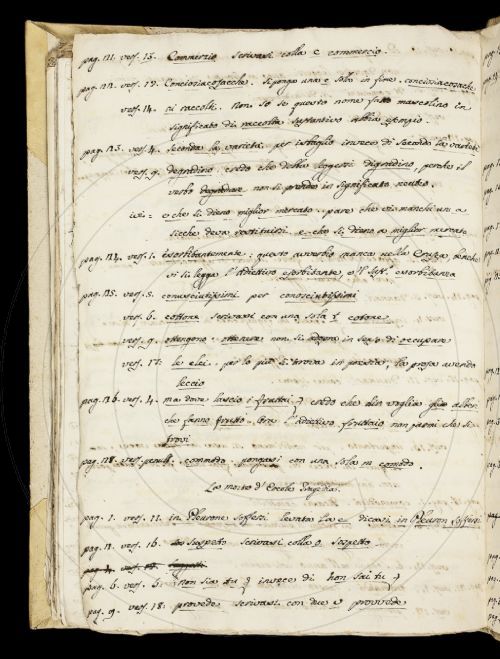 pag. 121. vers. 15. Commerzio scrivasi colla c commercio.
pag. 122. vers. 19. Conciosiacosacche. Si ponga una c sola in fine. conciosiacosache
vers. 14. ri raccolti. Non so se questo nome fatto mascolino in
significato di raccolta sustantivo abbia esempio.
pag. 123. vers. 4. Seconda la varietà. per isbaglio invece di Secondo la varietà
vers. 9. degradino. credo che debba leggersi digradino, perche il
verbo degradare non si prende in significato neutro.
ivi: e che si dieno miglior mercato. pare che vi manchi un a
sicche deva restituirsi e che si dieno a miglior mercato
pag. 124. vers. 1. esorbitantemente: questo avverbio manca nella Crusca, benche
vi si legga l'Adiettivo esorbitante, e'l Sust. esorbitanza
pag. 125. vers. 5. conusciutissimi per conosciutissimi
vers. 6. cottone scrivasi con una sola t cotone
vers. 9. ottengono. ottenere non si adopra in senso di occupare
vers. 17: le elci. per lo più si trova in poesia, la prosa avendo
leccio
pag. 126. vers. 4. ma dove lascio i fruttai? credo che dir voglia gli alberi
che fanno frutto. Ora l'adiettivo fruttaio non parmi che si
trovi
pag. 128. vers. penult. commodo. pongasi con una sola m comodo.
La morte d'Ercole Tragedia.
pag. 1. vers. 11. in Pleurone soffersi. levata la e dicasi in Pleuron soffersi
pag. 2. vers. 16. suspeto scrivasi colla o. sospetto
pag. 6. vers. 5: non sia tu? invece di non sai tu?
pag. 9. vers. 18: provede scrivasi con due v provvede